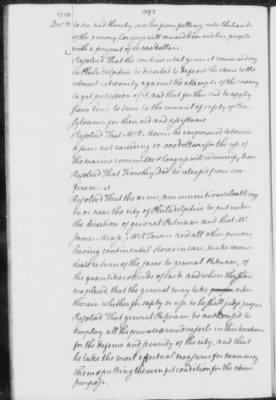 1092
1776
Dec. 12 to sea and thereby save her from falling into the hands
of the enemy Congress will reward him and his people
with a present of 10.000 dollars.
Resolved That the continental general commanding
in Philadelphia be directed to defend the same to the
utmost extremity against the attempts of the enemy
to get possession of it, and that for this end he apply
from time to time to the council of safety of Pen
sylvania for their aid and assistance
Resolved That Mr. R. Morris be impowered to borrow
a sum not exceeding 10.000 dollars for the use of
the marine committee & Congress will indemnify him
Resolved That Timothy Dod be released from con-
finement.
Resolved that the arms, ammunition & cloathing
in or near the city of Philadelphia be put under
the direction of general Putnam and that Mr.
James Mease, Mr. Towers and all other persons
having continental stores in care, make imme-
diate return of the same to general Putnam, of
the quantities & kinds of each and where they are
placed, that the general may take order
therein whether for safety or use as he shall judge proper
Resolved That general Putnam be authorised to
employ all the private armed vessels in this harbour
for the defence and security of the city, and that
he take the most effectual measures for manning
them & putting them in fit condition for the above
purpose.